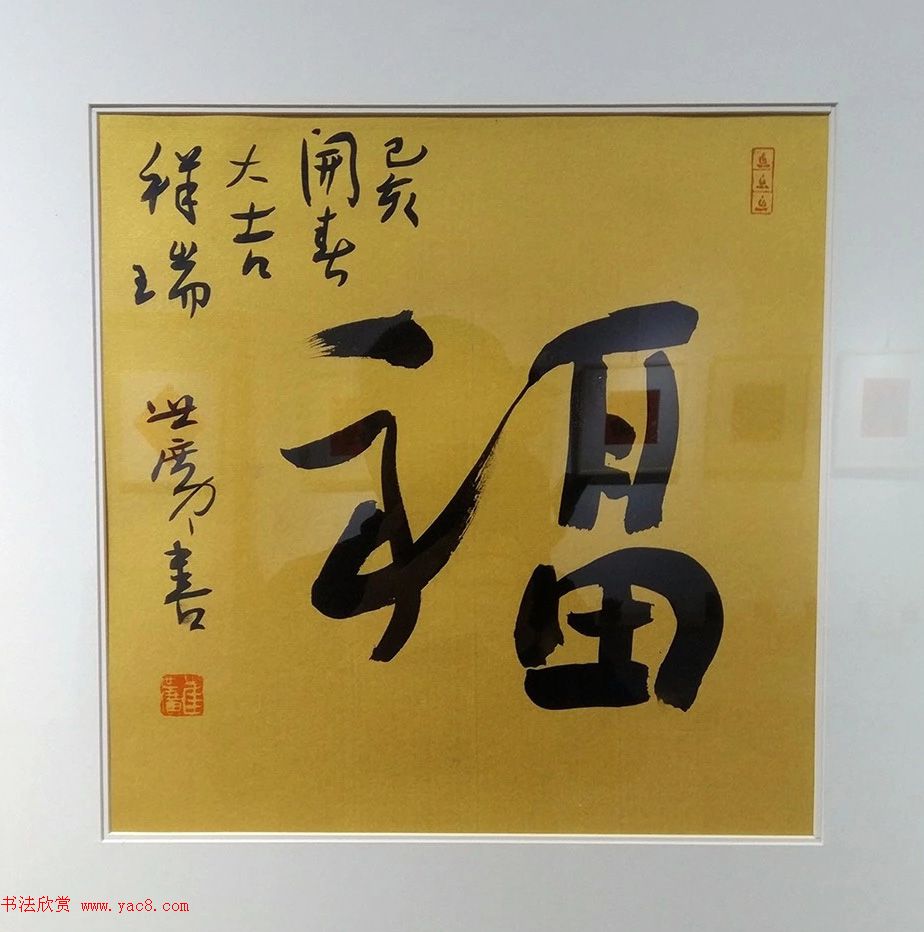 福
己亥
開春
大吉
祥瑞
書
书法欣赏 www.yac8.com